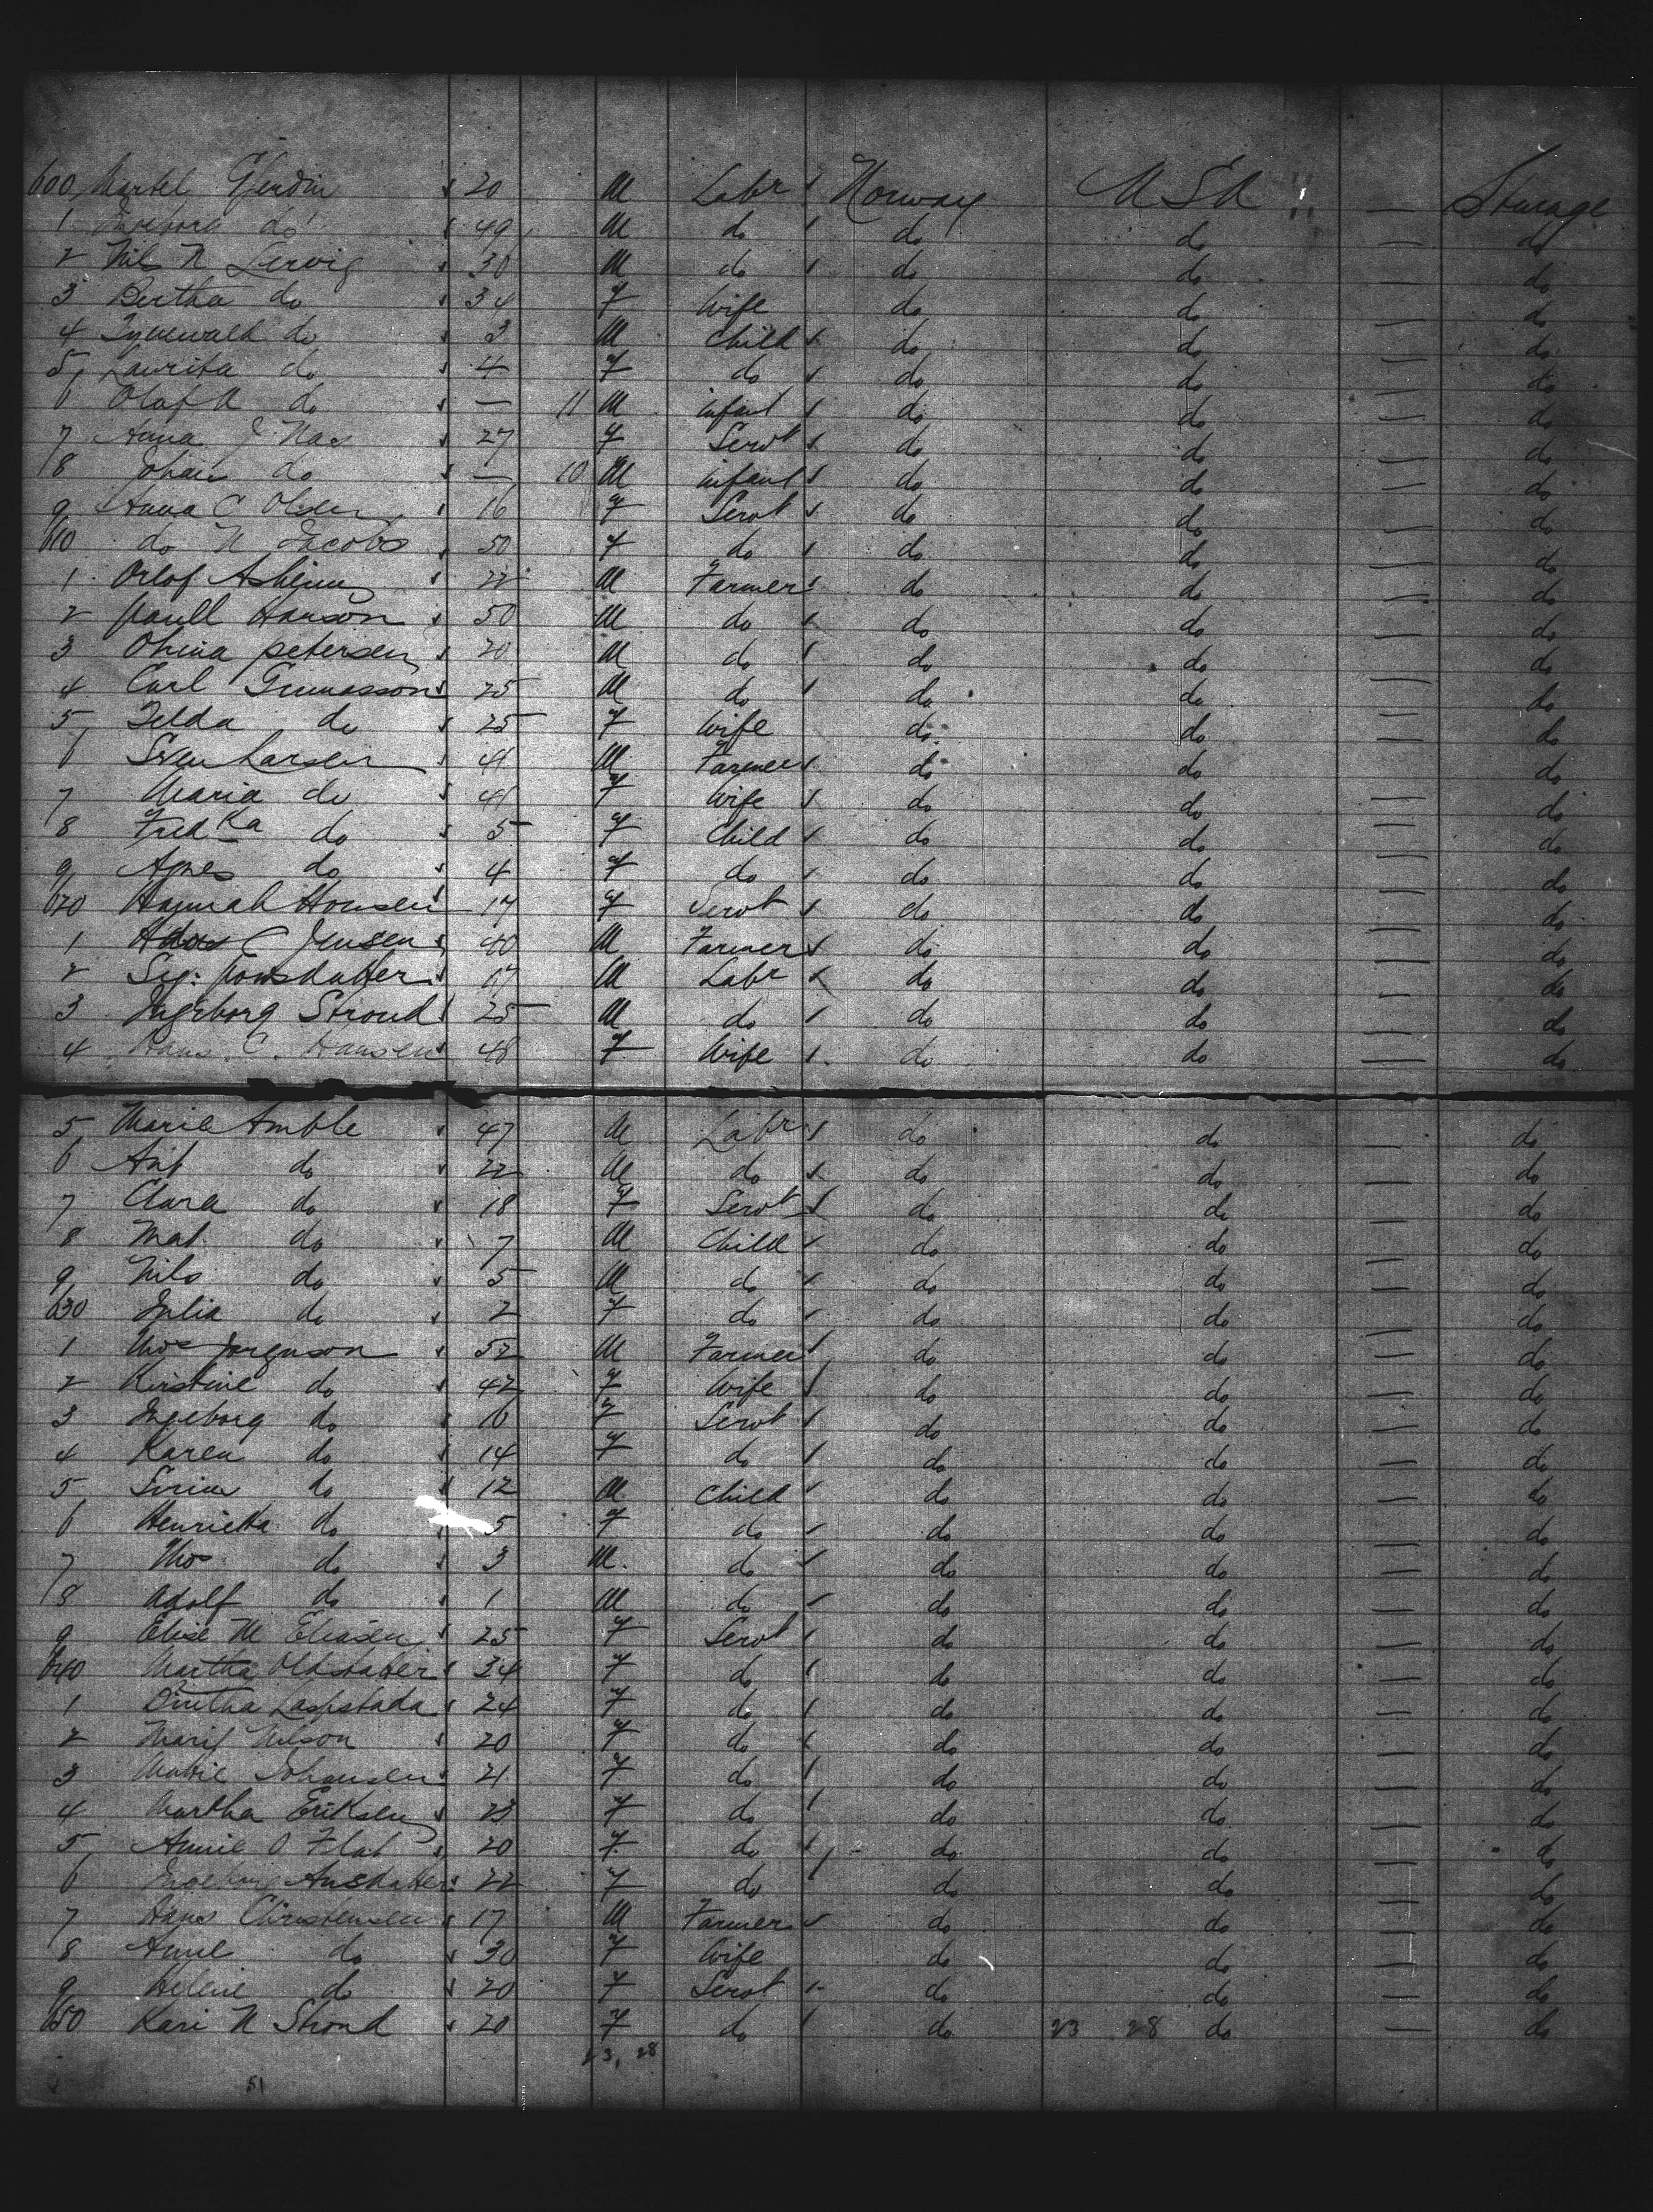 600 Martel Gjerdin 20 M Labr Norway U S A — Sterage
1 Ingeborg do 49 M do do do — do
2 Nils N Lervig 36 M do do do — do
3 Bertha do 34 F Wife do do — do
4 do 3 M Child do do — do
5 Laurita do 4 F do do do — do
6 Olaf A do — 11 M infant do do — do
7 Anna J. Nas 27 F Servt do do — do
8 Johan do — 10 M infant do do — do
9 Anna C Olsen 16 F Servt do do — do
610 do N Jacobs 50 F do do do — do
1 Orlof Asheim 22 M Farmer do do — do
2 Paull Hanson 50 M do do do — do
3 Ohina petersen 20 M do do do — do
4 Carl Gunnasson 25 M do do do — do
5 Telda do 25 F Wife do do — do
6 Sven Larsen 41 M Farmer do do — do
7 Maria do 41 F Wife do do — do
8 Fredka do 5 F Child do do — do
9 Agnes do 4 F do do do — do
620 Hannah Honsen 17 F Servt do do — do
1 C Jensen 40 M Farmer do do — do
2 Sig: Jonsdatter 17 M Labr do do — do
3 Ingeborg Stroud 25 M do do do — do
4 Hans. C. Hansen 48 F Wife do do — do
5 Marie Amble 47 M Labr do do — do
6 Ant do 22 M do do do — do
7 Clara do 18 F Servt do do — do
8 Mat do 7 M Child do do — do
9 Nils do 5 M do do do — do
630 Julia do 2 F do do do — do
1 Thos Jorgnson 52 M Farmer do do — do
2 Kirstine do 42 F Wife do do — do
3 Ingeborg do 16 F Servt do do — do
4 Karen do 14 F do do do — do
5 do 12 M Child do do — do
6 Henrietta do 5 F do do do — do
7 Thos do 3 M. do do do — do
8 Adolf do 1 M do do do — do
9 Elise M Eliasen 25 F Servt do do — do
640 Martha Olsdatter 34 F do do do — do
1 Laspstada 24 F do do do — do
2 Marij Nilson 20 F do do do — do
3 Marie Johansen 21 F do do do — do
4 Martha Eriksen 23 F do do do — do
5 Annie O Flat 20 F do do do — do
6 Ingeborg Ansdatter 22 F do do do — do
7 Hans Christensen 17 M Farmer do do — do
8 Anne do 30 F Wife do do — do
9 Helene do 20 F Servt do do — do
650 Kari N Shond 20 F do do 23 28 do — do
23, 28
51